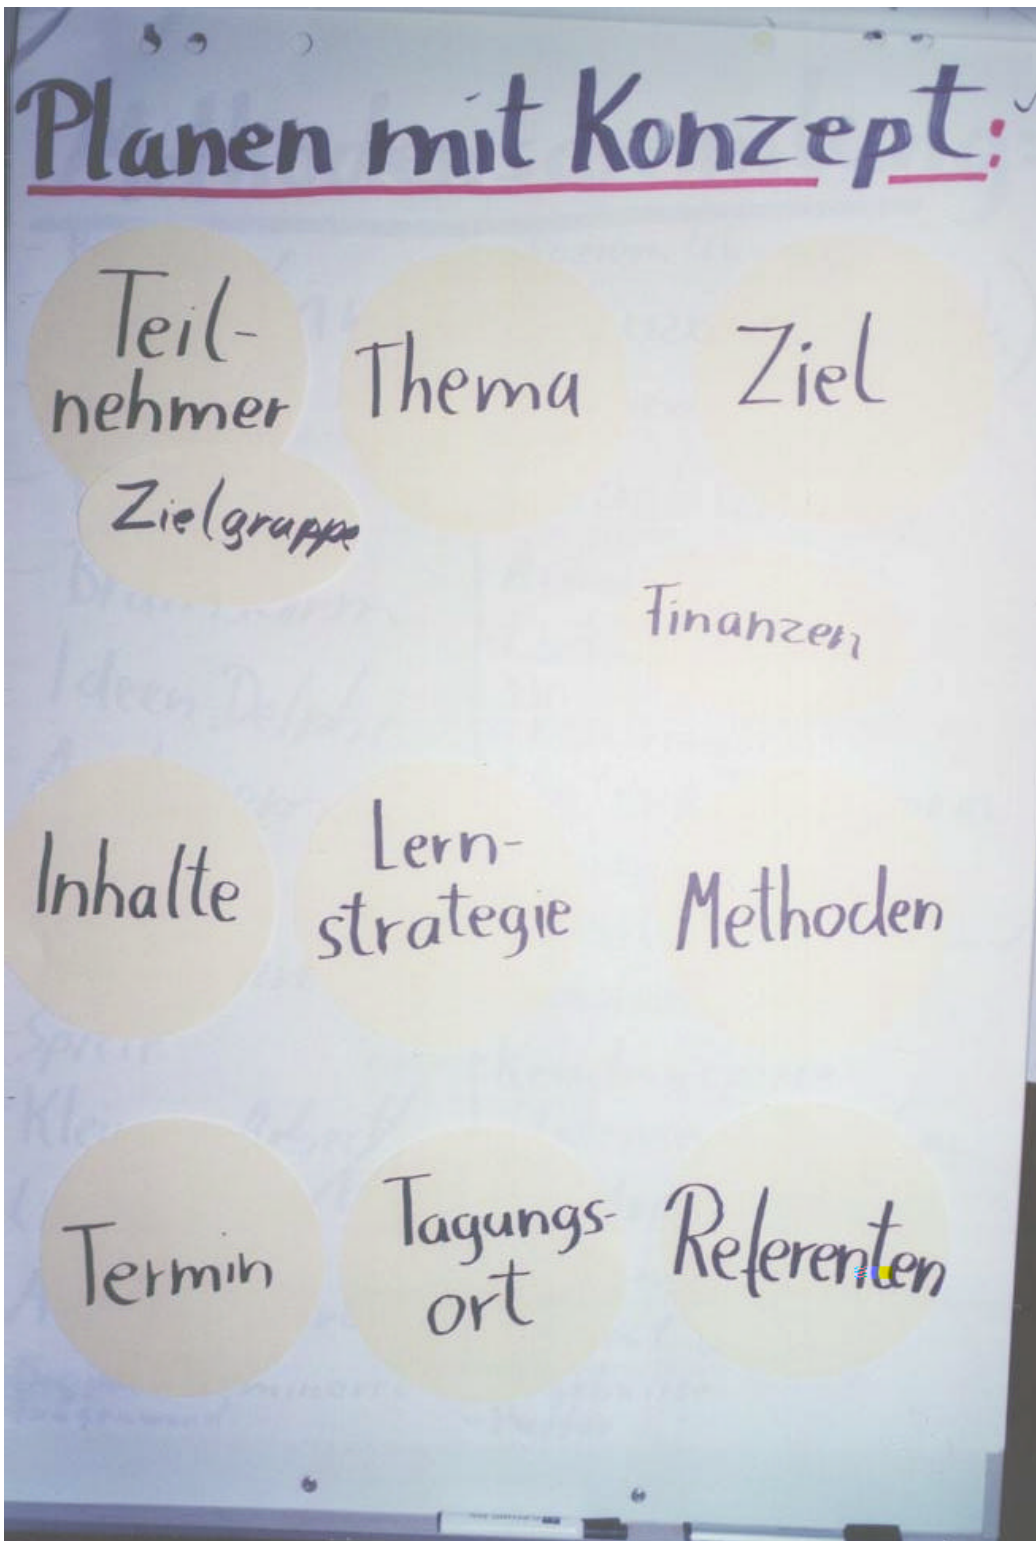 Planen mit Konzept:
Teil-
nehmer
Zielgruppe
Thema
Ziel
Finanzen
Inhalte
Lern-
strategie
Methoden
Termin
Tagungs-
ort
Referenten